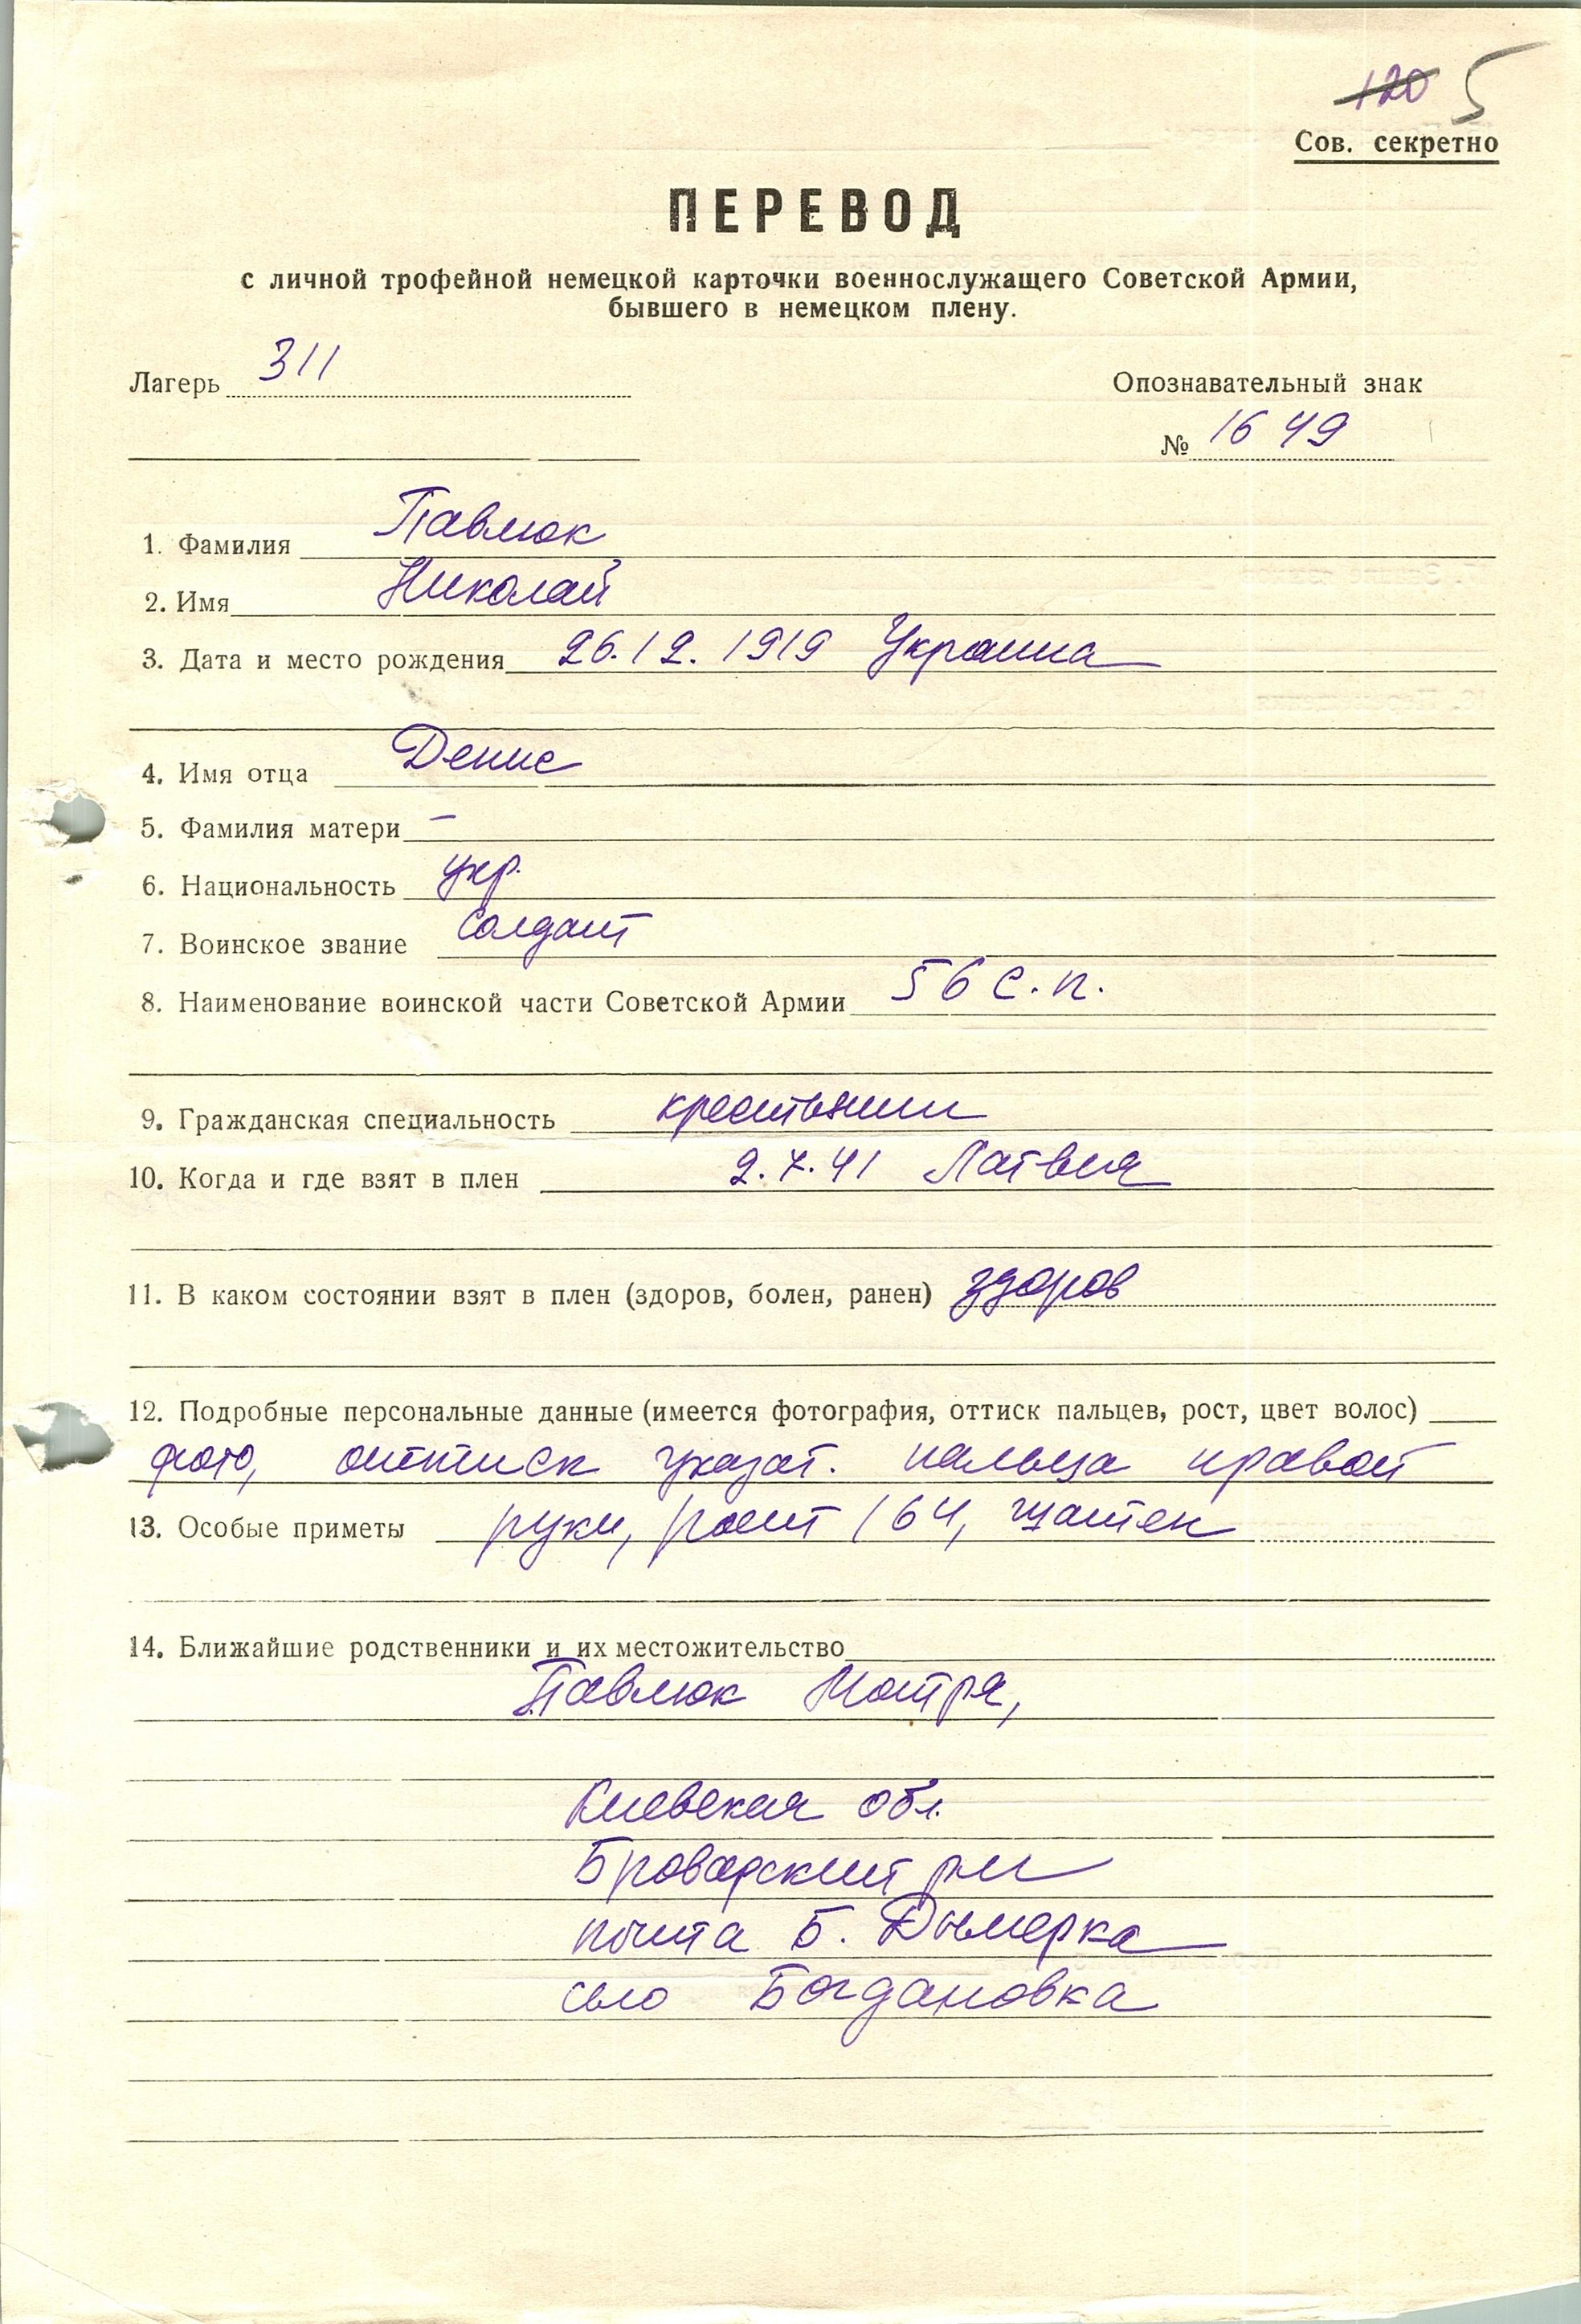 120 5
Сов. секретно
ПЕРЕВОД
с личной трофейной немецкой карточки военнослужащего Советской Армии,
бывшего в немецком плену.
Лагерь 311 Опознавательный знак
№ 1649
1. Фамилия Павлюк
2. Имя Николай
3. Дата и место рождения 26.12.1919 Украина
4. Имя отца Денис
5. Фамилия матери –
6. Национальность укр.
7. Воинское звание солдат
8. Наименование воинской части Советской Армии 56 с.п.
9. Гражданская специальность крестьянин
10. Когда и где взят в плен 2.7.41 Латвия
11. В каком состоянии взят в плен (здоров, болен, ранен) здоров
12. Подробные персональные данные (имеется фотография, оттиск пальцев, рост, цвет волос)
фото, оттиск указат. пальца правой
13. Особые приметы руки, рост 164, шатен
14. Ближайшие родственники и их местожительство
Павлюк Мотря,
Киевская обл.
Броварский р-н
почта Б. Дымерка
село Богдановка